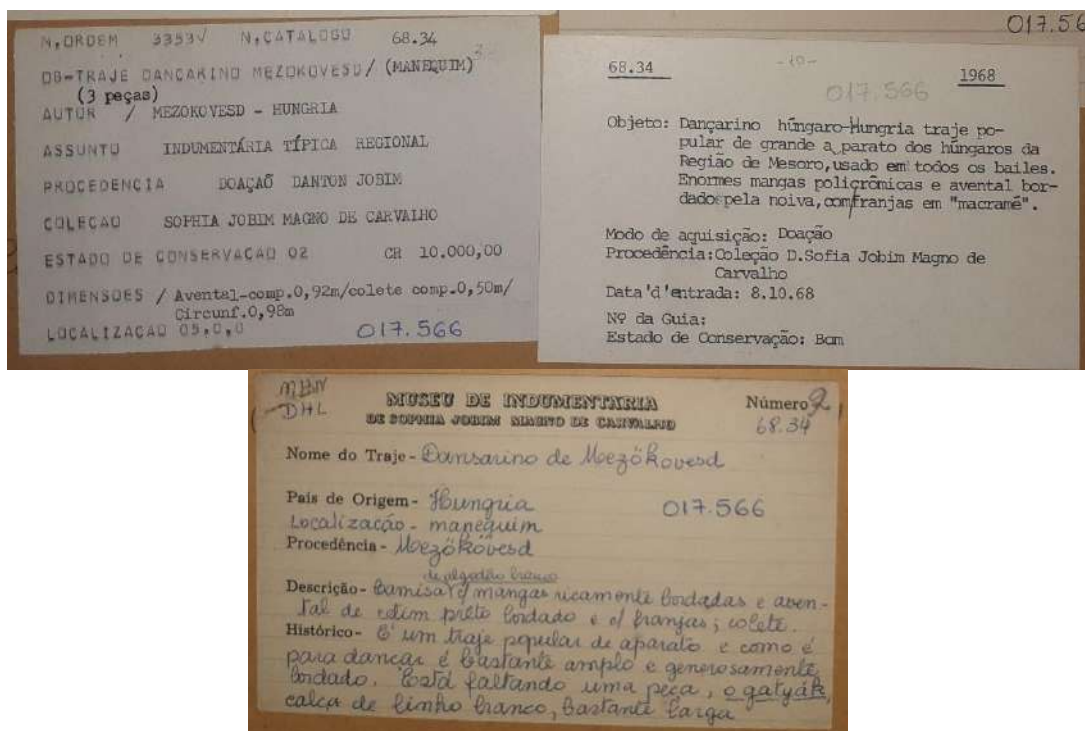 017.56
N,ORDEM 3353√ N,CATALOGO 68.34
OB-TRAJE DANCARINO MEZOKOVESD/ (MANEQUIM)
(3 peças)
AUTOR / MEZOKOVESD - HUNGRIA
ASSUNTO INDUMENTÁRIA TÍPICA REGIONAL
PROCEDENCIA DOAÇAÕ DANTON JOBIM
COLECAO SOPHIA JOBIM MAGNO DE CARVALHO
ESTADO DE CONSERVACAO 02 CR 10.000,00
DIMENSOES / Avental-comp.0,92m/colete comp.0,50m/
Circunf.0,98m
LOCALIZACAO 05,0,0 017.566
68.34 -10- 1968
017.566
Objeto: Dançarino húngaro-Hungria traje po-
pular de grande a parato dos húngaros da
Região de Mesoro,usado em todos os bailes.
Enormes mangas policrômicas e avental bor-
dado pela noiva,com franjas em "macramê".
Modo de aquisição: Doação
Procedência:Coleção D.Sofia Jobim Magno de
Carvalho
Data'd'entrada: 8.10.68
Nº da Guia:
Estado de Conservação: Bom
MHN
DHL
MUSEU DE INDUMENTARIA
DE SOPHIA JOBIM MAGNO DE CARVALHO
Número 2
68.34
Nome do Traje - Dansarino de Mezökovesd
País de Origem - Hungria 017.566
Localização - manequim
Procedência - Mezökövesd
de algodão branco
Descrição - Camisa c/ mangas ricamente bordadas e aven-
tal de cetim preto bordado e c/ franjas; colete.
Histórico - É um traje popular de aparato e como é
para dançar é bastante amplo e generosamente
bordado. Está faltando uma peça, o gatyák,
calça de linho branco, bastante larga